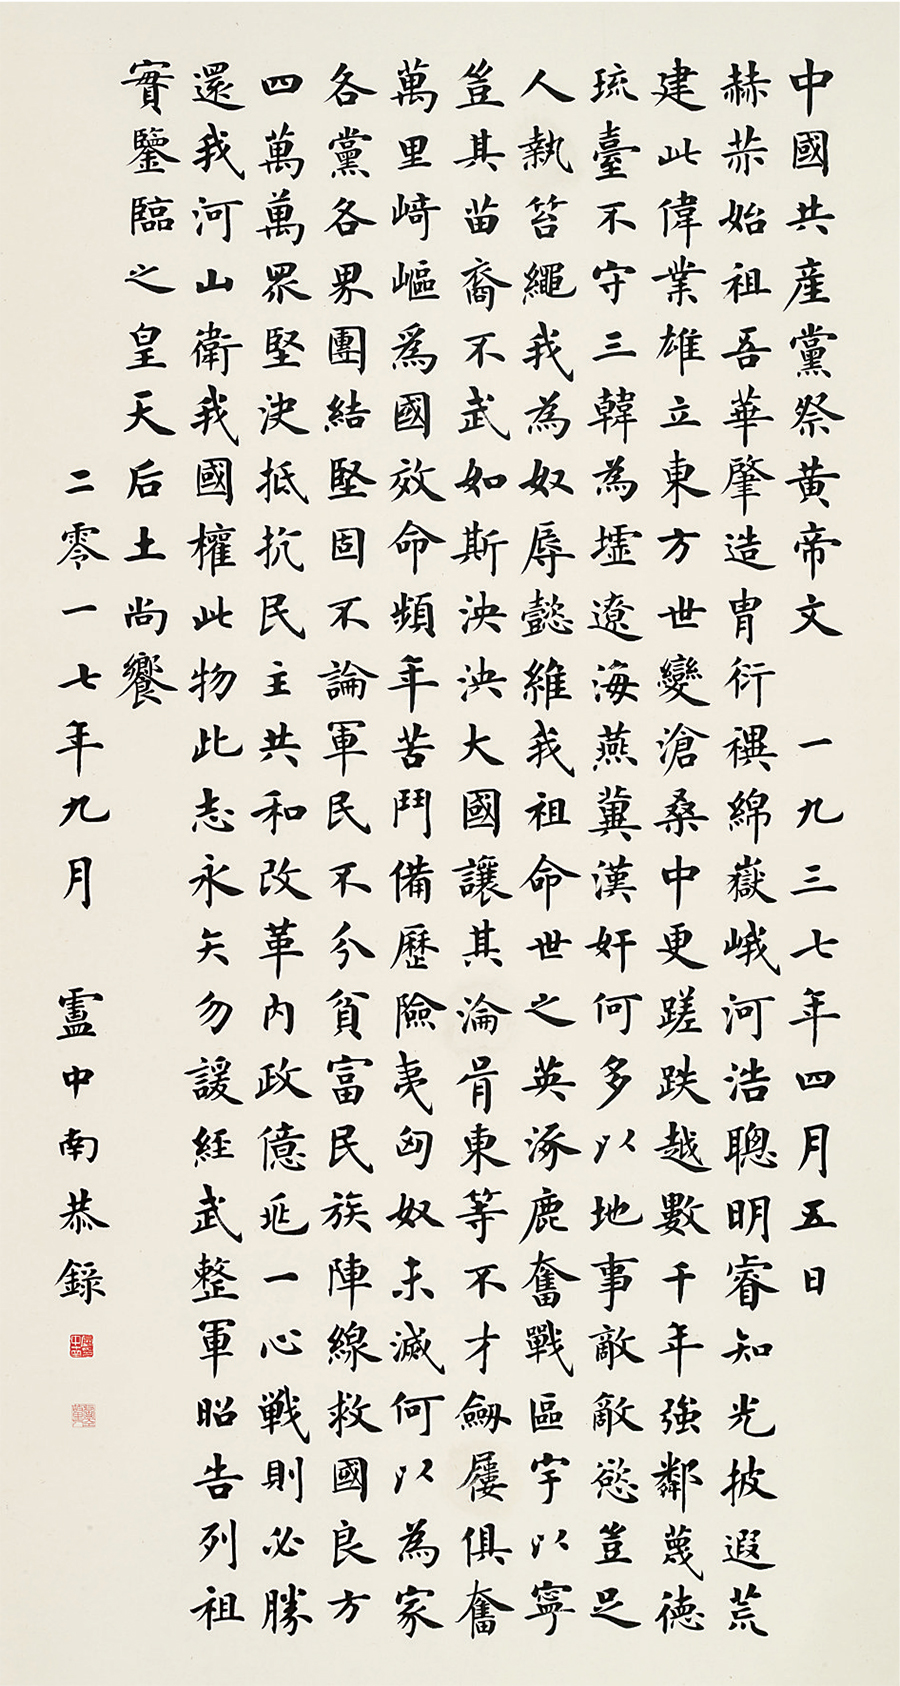 中國共產黨祭黄帝文 一九三七年四月五日
赫赫始祖吾華肇造胄衍禩綿嶽峨河浩聰明睿知光披遐荒
建此偉業雄立東方世變滄桑中更蹉跌越數千年強鄰蔑德
琉臺不守三韓為墟遼海燕冀漢奸何多以地事敵敵慾豈足
人執笞繩我為奴辱懿維我祖命世之英涿鹿奮戰區宇以寧
豈其苗裔不武如斯泱泱大國讓其淪胥東等不才劒屨俱奮
萬里崎嶇爲國效命頻年苦鬥備歷險夷匈奴未滅何以為家
各黨各界團結堅固不論軍民不分貧富民族陣線救國良方
四萬萬眾堅決抵抗民主共和改革內政億兆一心戰則必勝
還我河山衛我國權此物此志永矢勿諼經武整軍昭告列祖
實鑒臨之皇天后土尚饗
二零一七年九月 盧中南恭錄